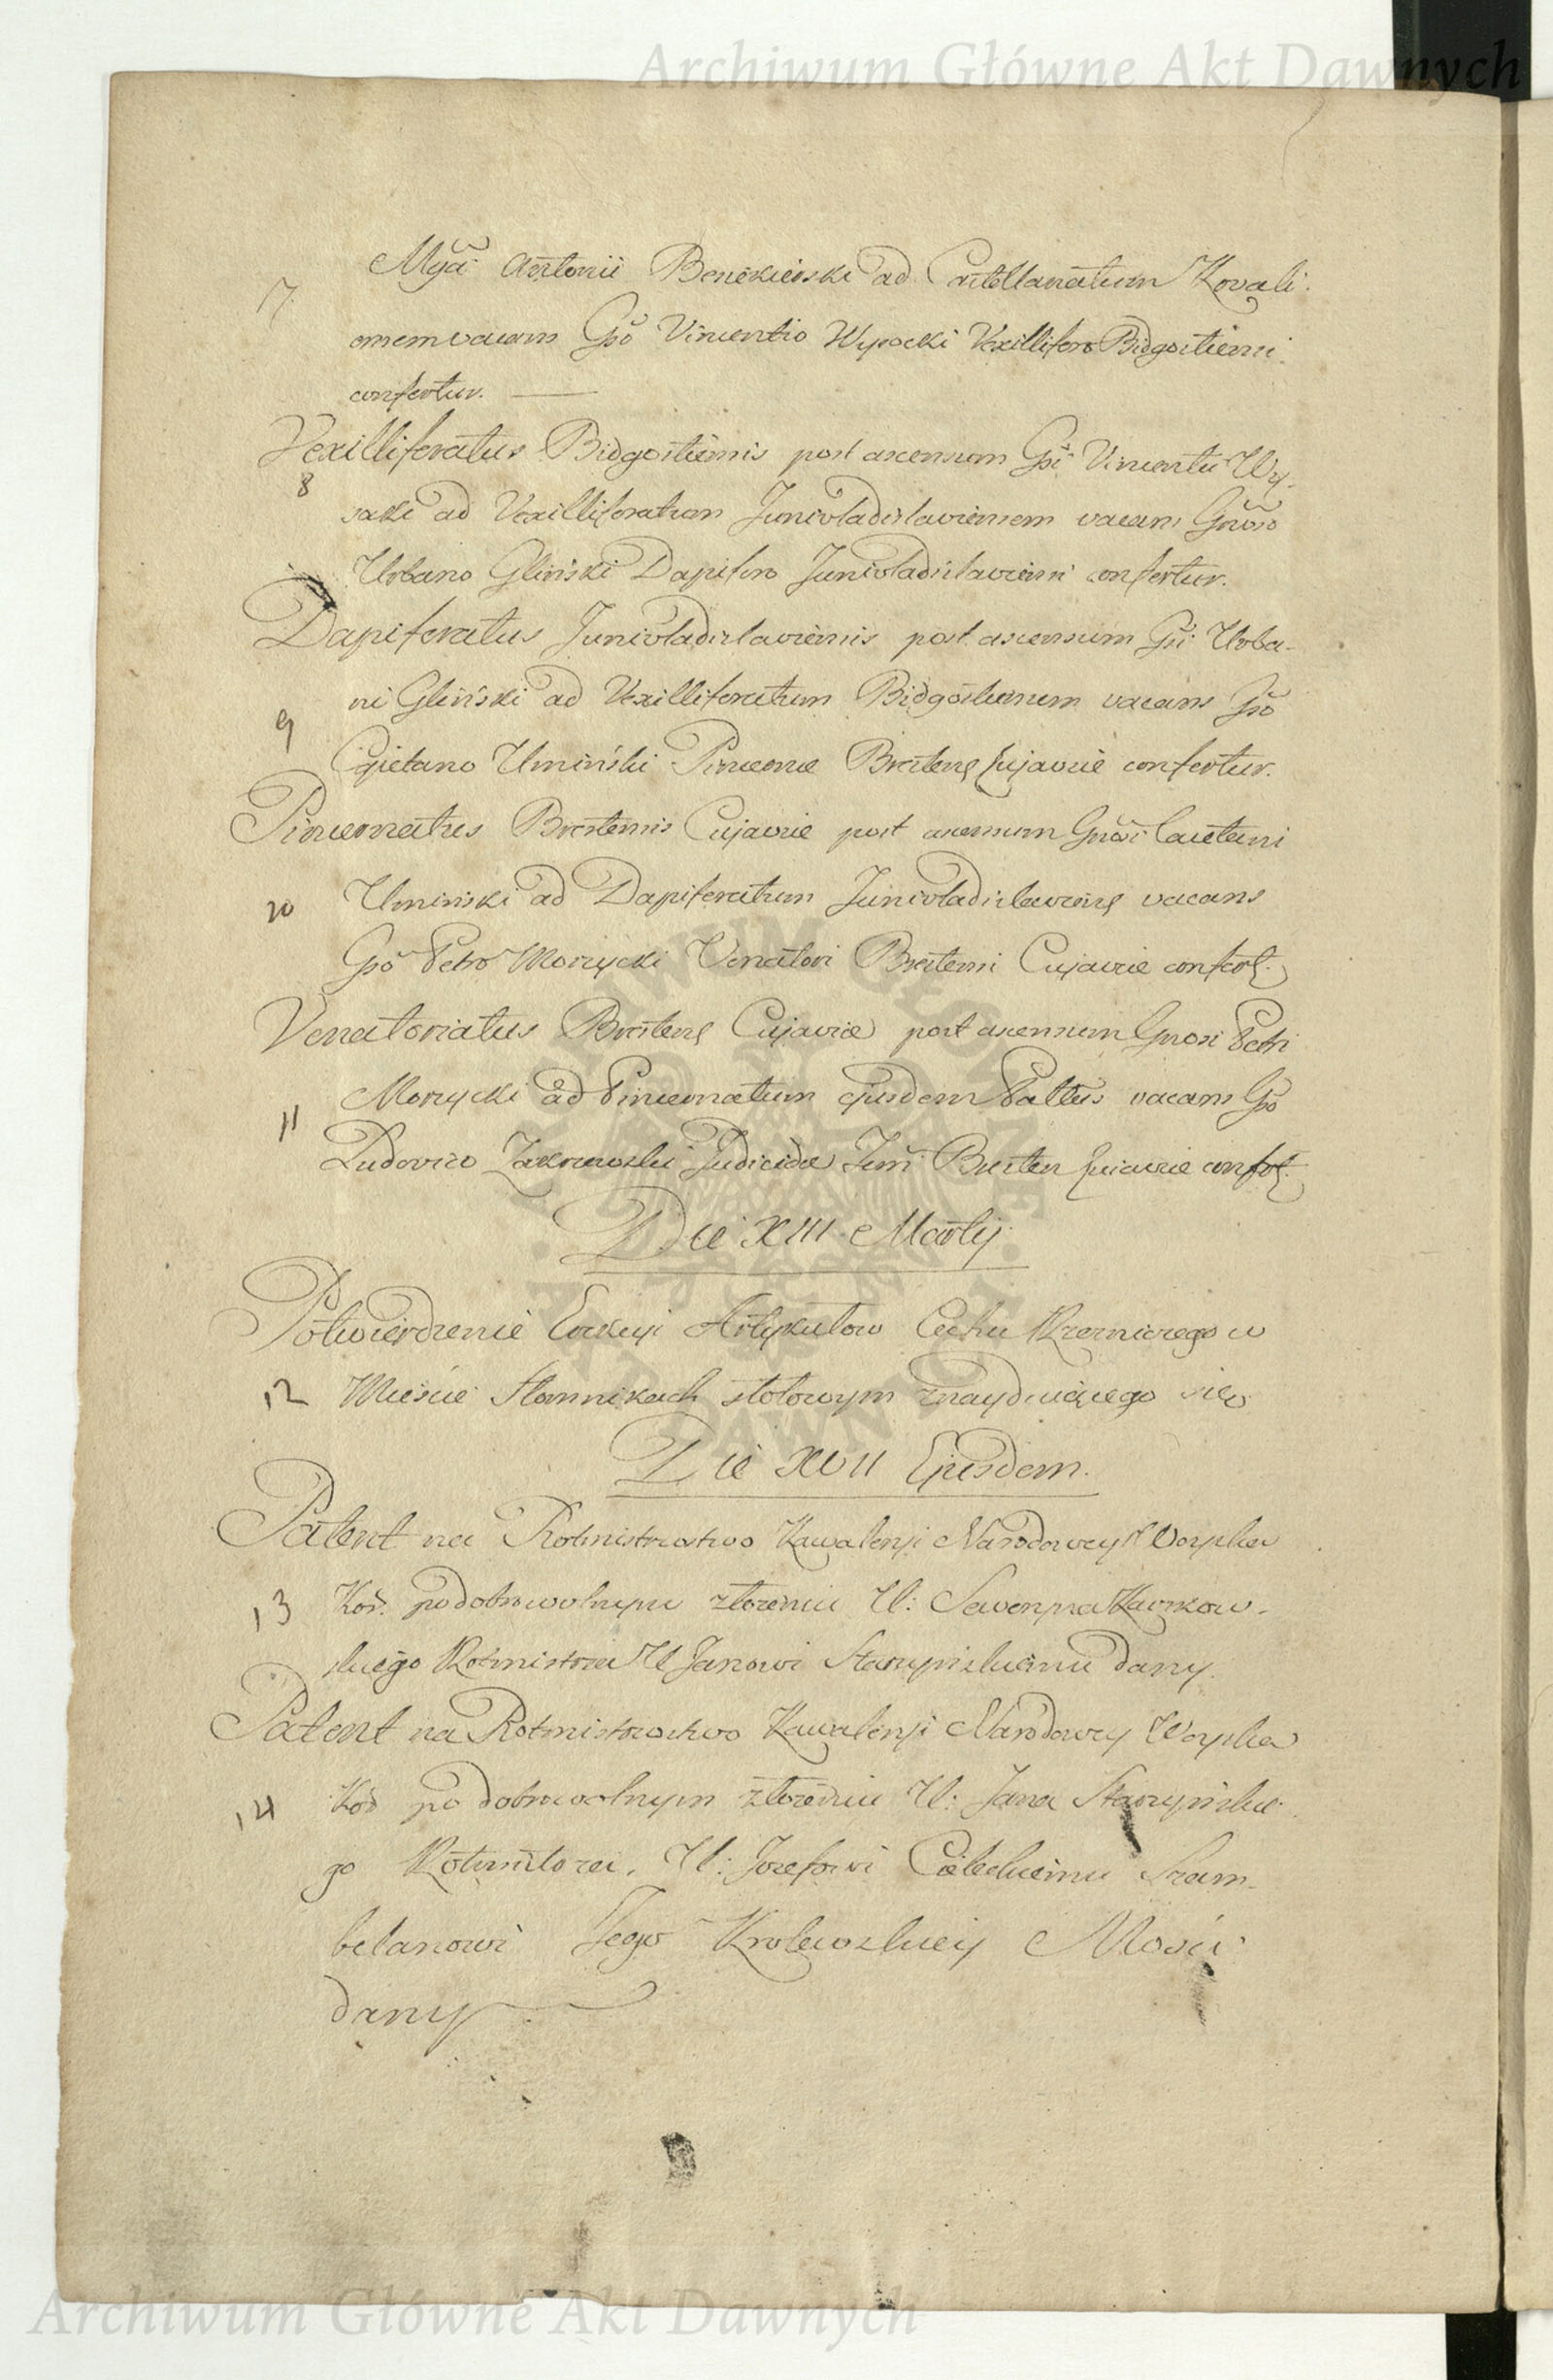 Archiwum Główne Akt Dawnych
7 Mgci Antonii Benekierski ad Castellanatum Kovali
ensem vacans Gso Vincentio Wysocki Vexillifero Bidgostiensi
confertur.
Vexilliferatus Bidgostiensis post ascensum Gsi Vincentii Wy-
8
socki ad Vexilliferatum Junivladislaviensem vacans Gnoso
Urbano Gliński Dapifero Junivladislaviensi confertur.
Dapiferatus Junivladislaviensis post ascensum Gsi Urba-
9 ni Gliński ad Vexilliferatum Bidgostiensem vacans Gso
Cajetano Umiński Pincernæ Brestens Cujaviæ confertur.
Pincernatus Brestensis Cujaviæ post ascensum Gnosi Caietani
10 Umiński ad Dapiferatum Junivladislaviens vacans
Gso Petro Morzycki Venatori Brestensi Cujaviæ confert.
Venatoriatus Brestens Cujaviæ post ascensum Gnosi Petri
11 Morzycki ad Pincernatum ejusdem Pallus vacans Gso
Ludovico Judicida Bresten Cujaviæ confert.
Die XIII Martij
Potwierdzenie Erekcyi Artykułow Cechu Rzezniczego w
12 Miescie Słomnikach stołowym znayduiącego się
Die XVII Ejusdem.
Patent na Rotmistrzostwo Kawaleryi Narodowey Woyska
13 Kor. po dobrowolnym złozeniu U: Seweryna Karskow-
skiego Rotmistrza U Janowi Starzynskiemu dany.
Patent na Rotmistrzostwo Kawaleryi Narodowey Woyska
14 Kor po dobrowolnym złozeniu U: Jana Starzynskie-
go Rotmistrza, U: Jozefowi Cieleckiemu Szam-
belanowi Jego Krolewskiey Mosci
dany
Archiwum Główne Akt Dawnych